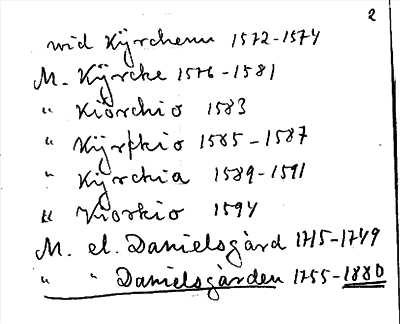 2
wid Kÿrchenn 1572-1574
M. Kÿrcke 1576-1581
" Kiörchio 1583
" Kÿrfkio 1585-1587
" Kÿrckia 1589-1591
" Kiorkio 1594
M. el. Danielsgård 1715-1749
" " Danielsgården 1755-1880